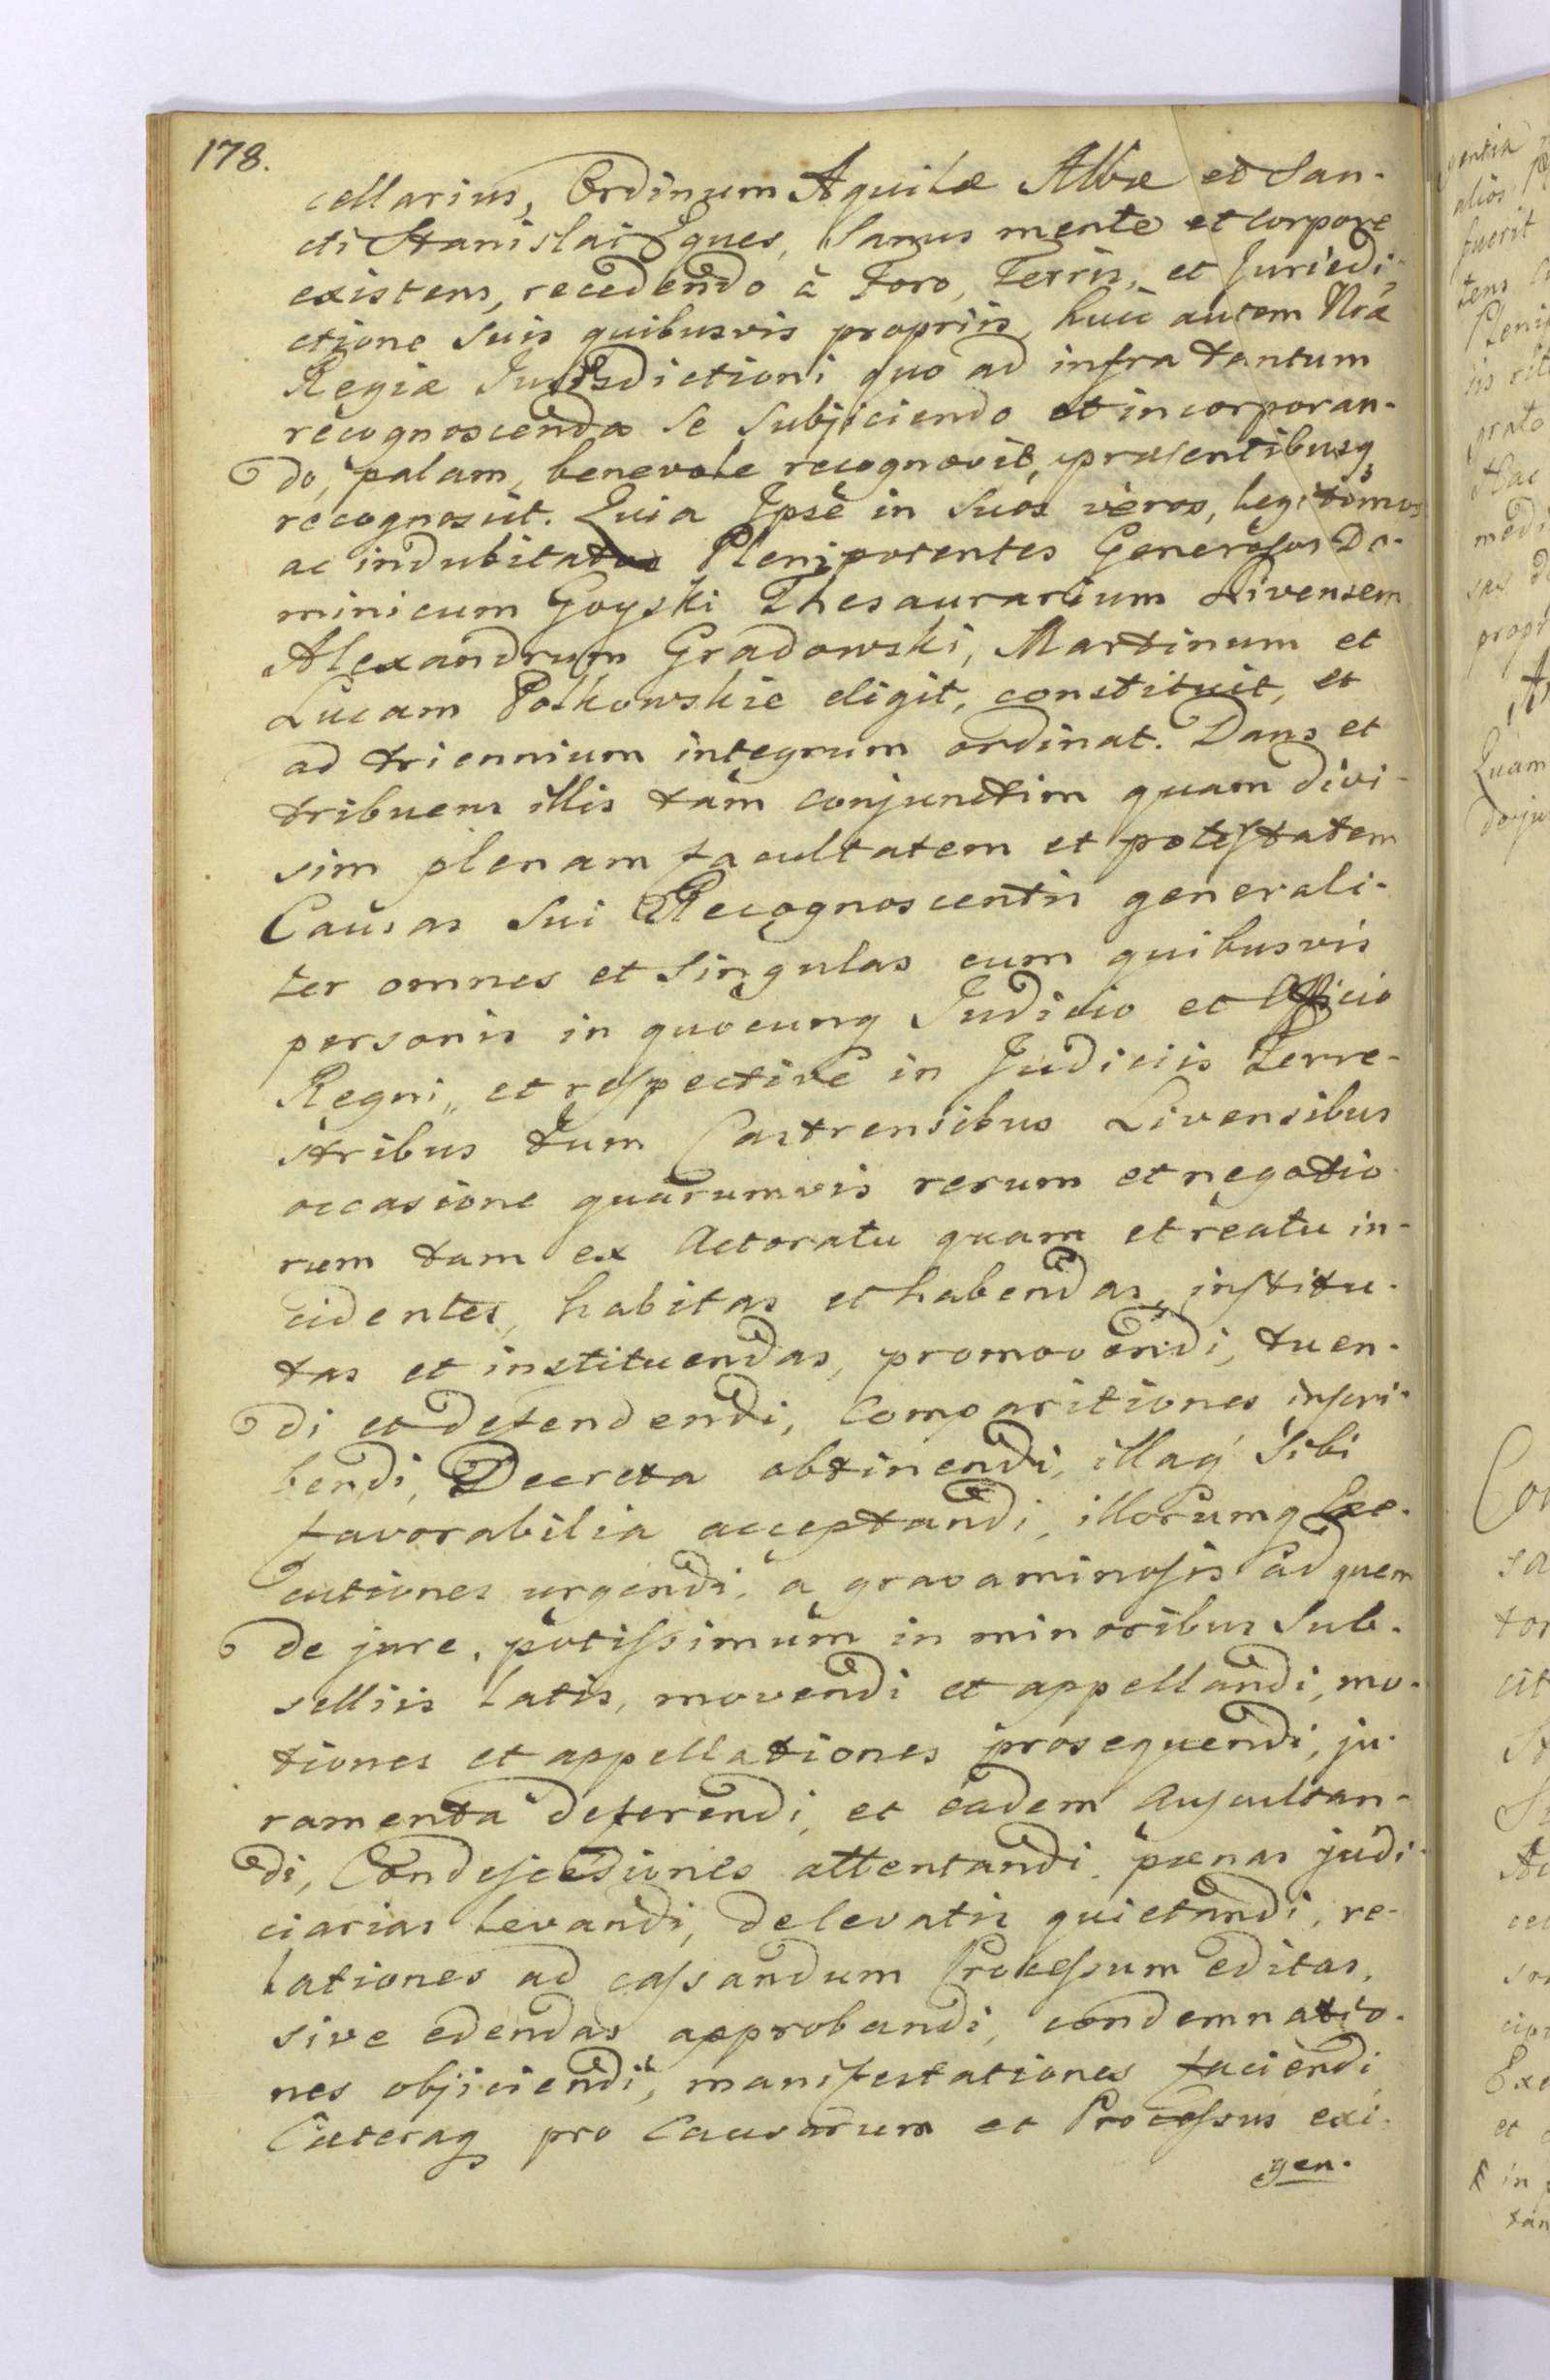 178.
cellarius, Ordinum Aquilæ Albæ et San-
cti Stanislai Eques, Sanus mente et corpore
existens, recedendo à Foro, Terris, et Jurisdi-
ctione suis quibusvis propriis, huic autem Nræ
Regiæ Jurisdictioni quo ad infra tantum
recognoscenda se subjiciendo et incorporan-
do, palam, benevole recognovit, præsentibusq
recognoscit. Quia Ipse in suos veros, legitimos
ac indubitatos Plenipotentes Generosos Do-
minicum Goyski Thesaurarium Livensem
Alexandrum Gradowski, Martinum et
Lucam Polkowskie eligit, constituit, et
ad triennium integrum ordinat. Dans et
tribuens illis tàm conjunctim quam divi-
sim plenam facultatem et potestatem
Causas sui Recognoscentis generali-
ter omnes et singulas cum quibusvis
personis in quocunq Judicio et Officio
Regni, et respective in Judiciis Terre-
stribus tum Castrensibus Livensibus
occasione quarumvis rerum et negotio-
rum tam ex Actoratu quam et reatu in-
cidentes, habitas et habendas, institu-
tas et instituendas, promovendi, tuen-
di et defendendi, Comparitiones inscri-
bendi, Decreta obtinendi, illaq sibi
favorabilia acceptandi, illorumq Exe-
cutiones urgendi, a gravaminosis ad quem
de jure, potissimùm in minoribus Sub-
selliis latis, movendi et appellandi, mo-
tiones et appellationes prosequendi, ju-
ramenta deferendi, et eadem auscultan-
di, Condescensiones attentandi, pænas judi-
ciarias levandi, de levatis quietandi, re-
lationes ad cassandum Processum editas,
sive edendas approbandi, condemnatio-
nes objiciendi, manifestationes faciendi
Cæteraq pro Causarum et Processus exi-
gen-